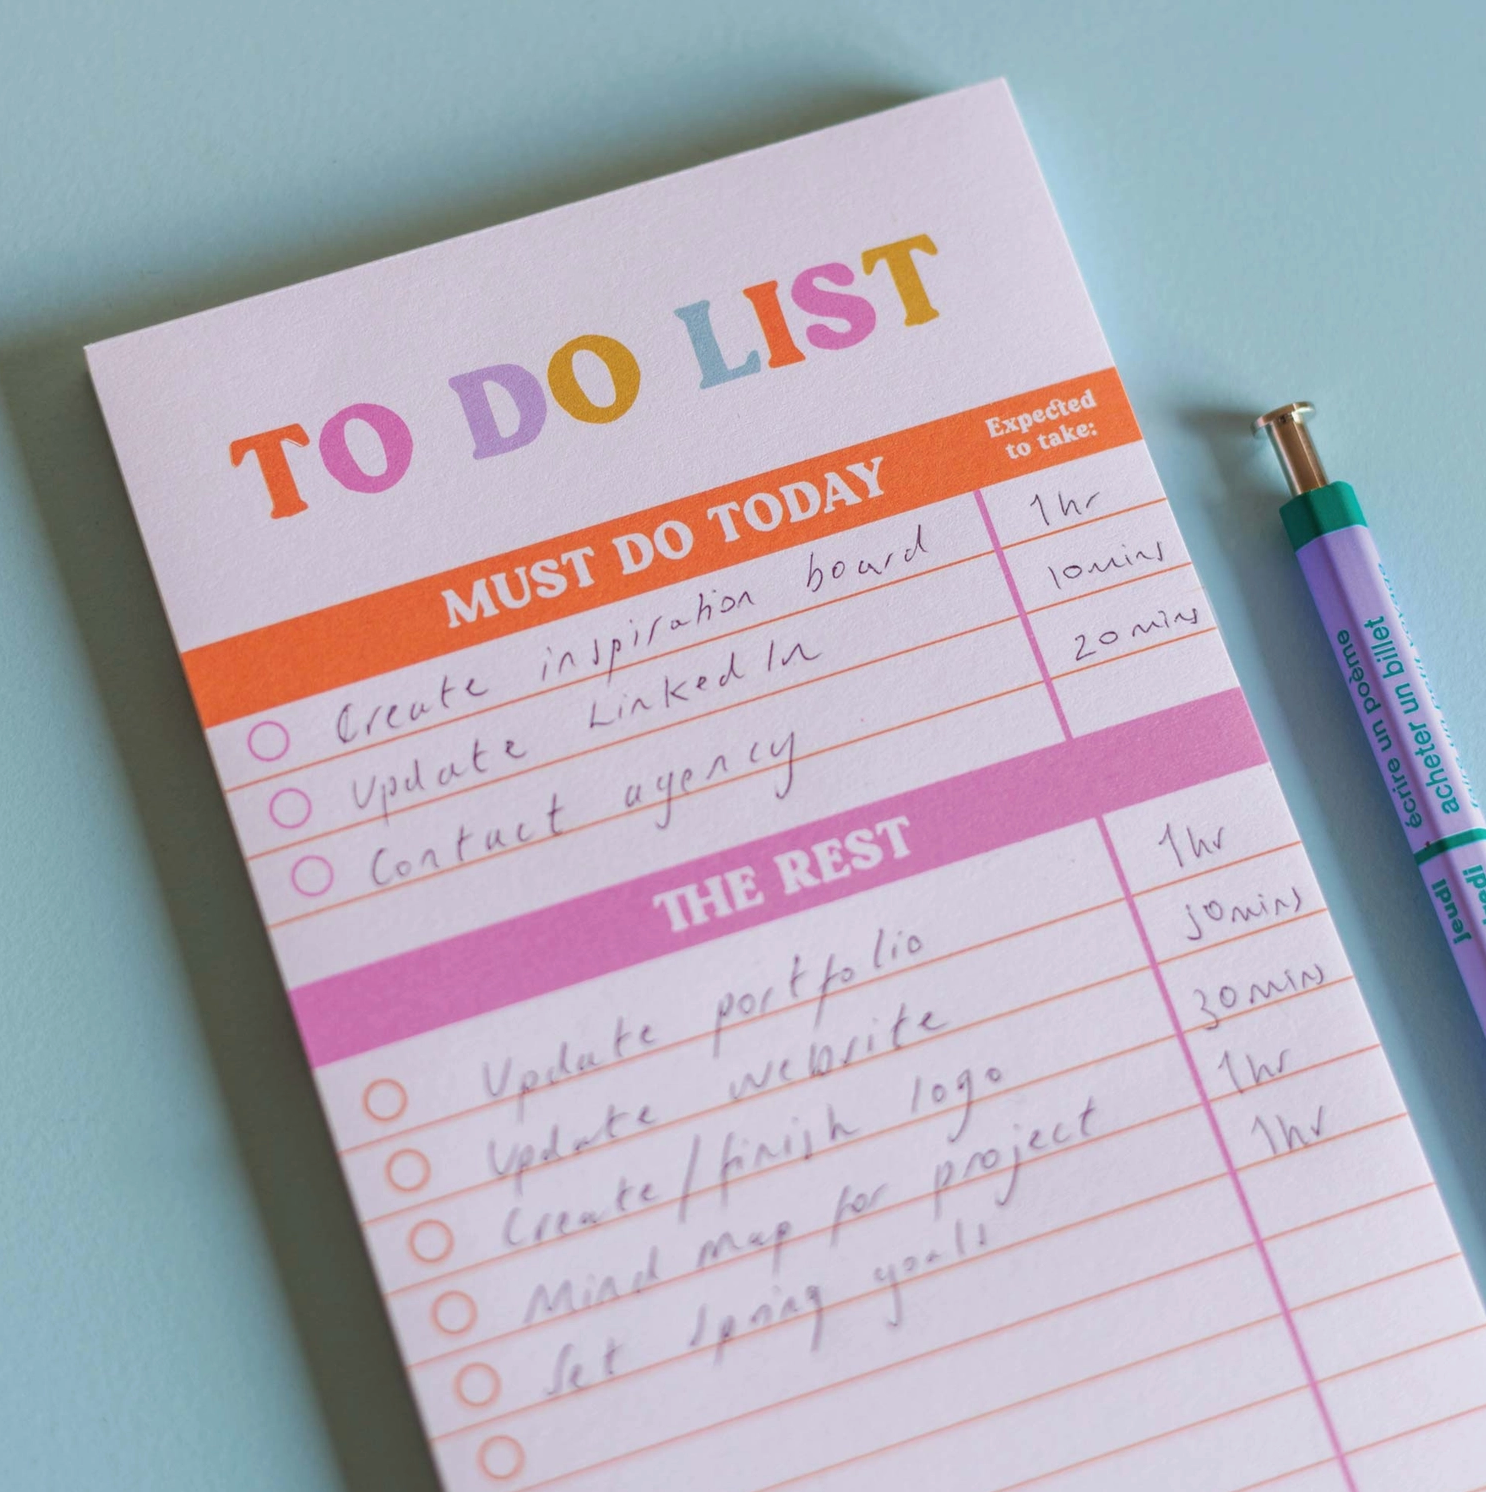 TO DO LIST
MUST DO TODAY Expected to take:
Create inspiration board 1hr
Update LinkedIn 10mins
Contact agency 20mins
THE REST
Update portfolio 1hr
Update website
Create/finish logo 30mins
Mind map for project 1hr
Set spring goals 1hr
écrire un poème
acheter un billet
Jeudi